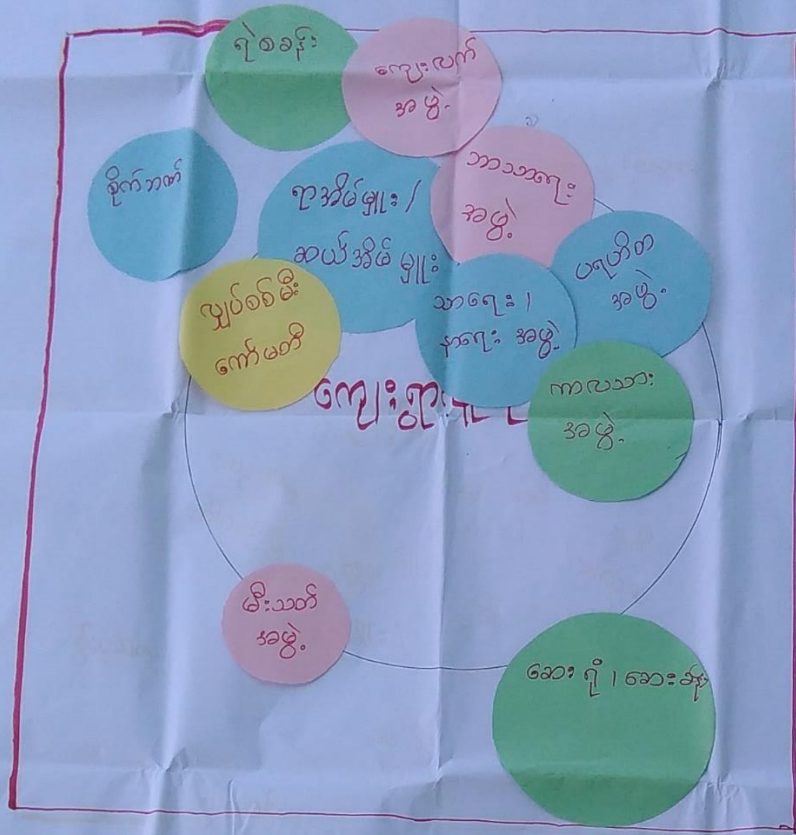 ရဲစခန်း
ကျေးလက်
အဖွဲ့
စိုက်ဘဏ်
ရာအိမ်မှူး/
ဆယ်အိမ်မှူး
ဘာသာရေး
အဖွဲ့
ပရဟိတ
အဖွဲ့
လျှပ်စစ်မီး
ကော်မတီ
သာရေး၊
နာရေး အဖွဲ့
ကျေးရွာ
ကာလသား
အဖွဲ့
မီးသတ်
အဖွဲ့
ဆေးရုံ၊ ဆေးခန်း